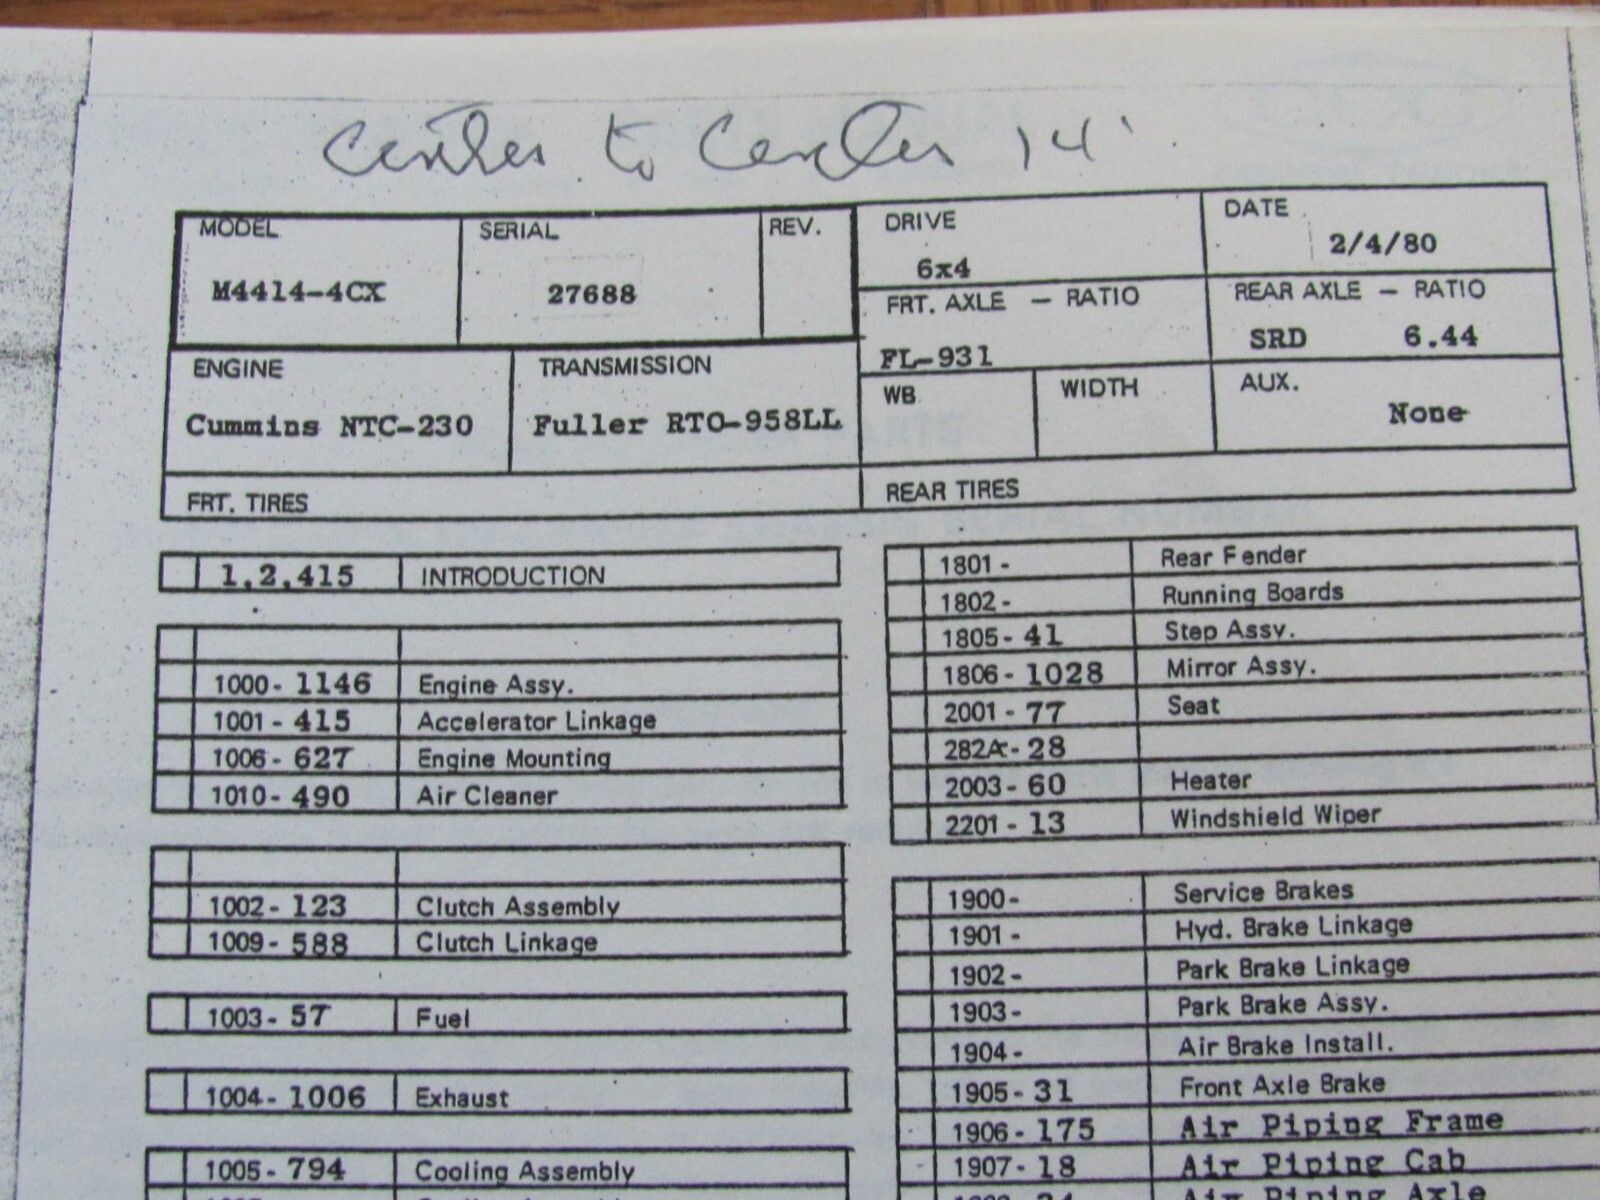 Center to Center 14'
MODEL
M4414-4CX
SERIAL
27688
REV.
DRIVE
6x4
DATE
2/4/80
FRT. AXLE - RATIO
FL-931
REAR AXLE - RATIO
SRD 6.44
ENGINE
Cummins NTC-230
TRANSMISSION
Fuller RTO-958LL
WB
WIDTH
AUX.
None
FRT. TIRES
REAR TIRES
1,2,415 INTRODUCTION
1000- 1146 Engine Assy.
1001 - 415 Accelerator Linkage
1006- 627 Engine Mounting
1010- 490 Air Cleaner
1002- 123 Clutch Assembly
1009- 588 Clutch Linkage
1003- 57 Fuel
1004- 1006 Exhaust
1005- 794 Cooling Assembly
1801 - Rear Fender
1802 - Running Boards
1805- 41 Step Assy.
1806- 1028 Mirror Assy.
2001 - 77 Seat
282A- 28
2003- 60 Heater
2201 - 13 Windshield Wiper
1900- Service Brakes
1901 - Hyd. Brake Linkage
1902- Park Brake Linkage
1903- Park Brake Assy.
1904- Air Brake Install.
1905- 31 Front Axle Brake
1906- 175 Air Piping Frame
1907- 18 Air Piping Cab
Air Piping Axle